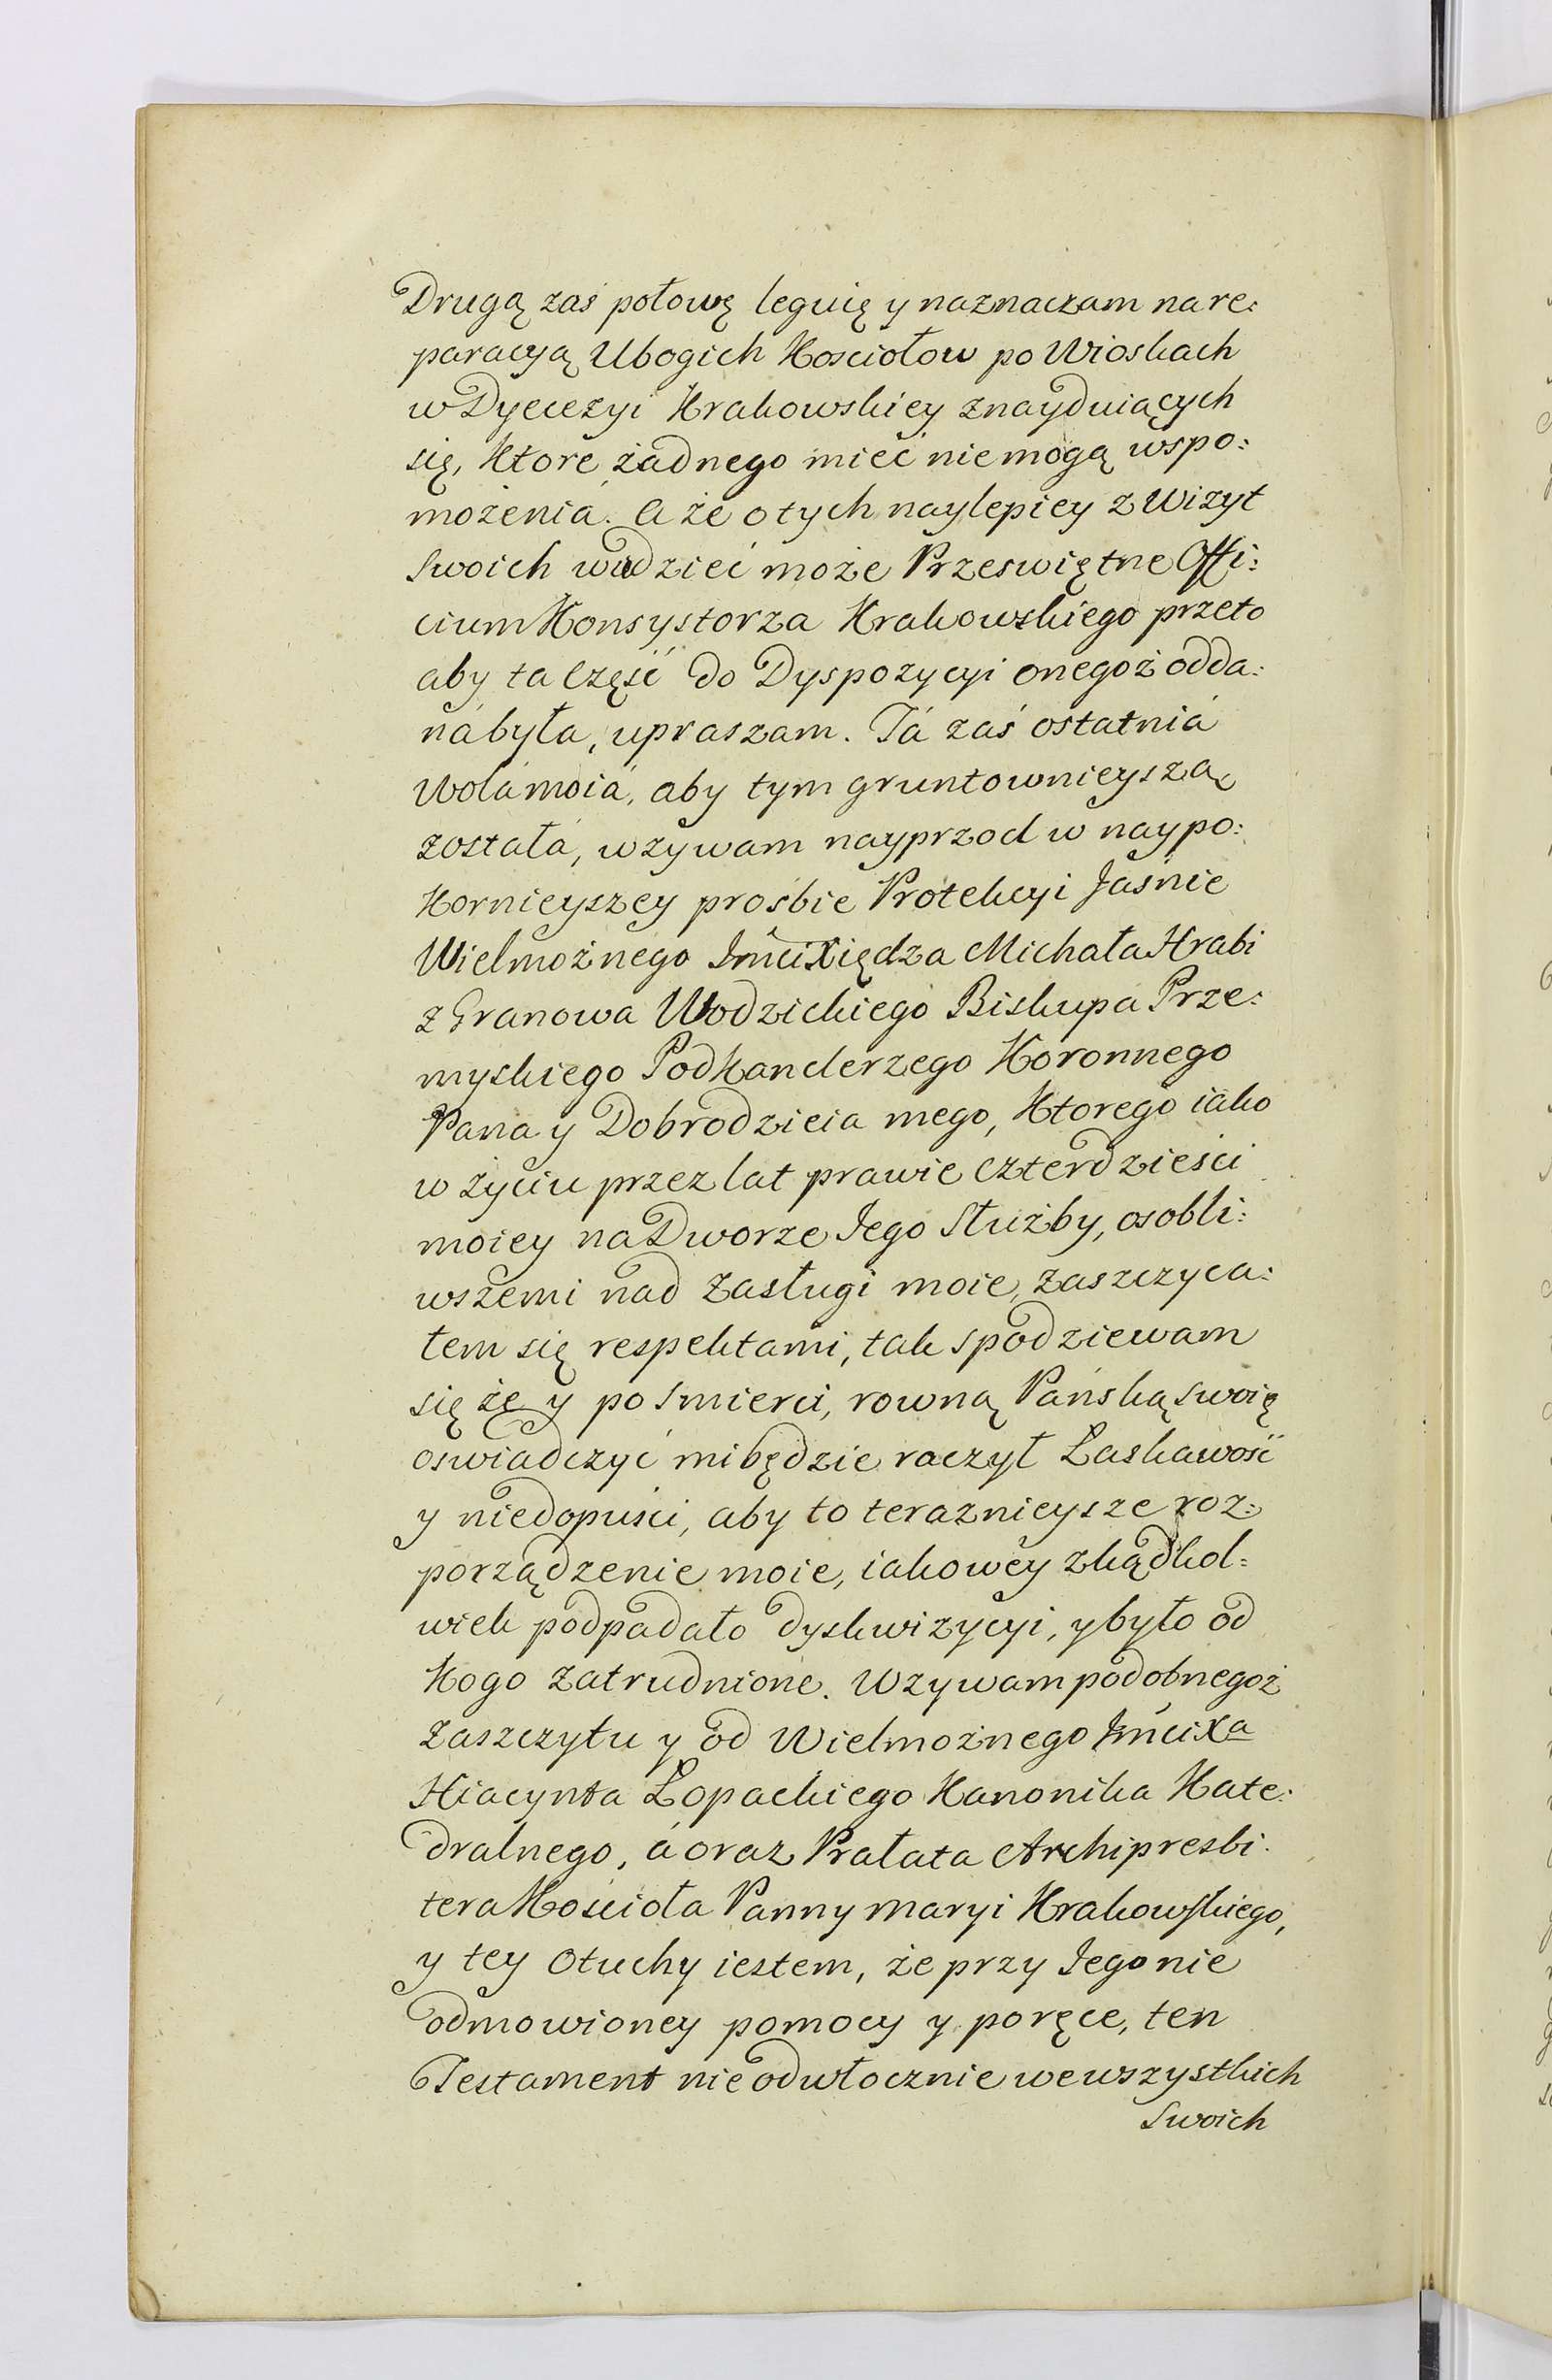 Drugą zaś połowę leguię y naznaczam na re:
paracyą Ubogich Kosciołow po Wioskach
w Dyecezyi Krakowskiey znayduiących
się, ktore żadnego mieć nie mogą wspo:
możenia. A że o tych naylepiey z Wizyt
swoich widzieć może Przeswiętne Offi:
cium Konsystorza Krakowskiego przeto
aby ta Część do Dyspozycyi onegoż odda:
ná była, upraszam. Tá zaś ostatniá
Wolá moiá, aby tym gruntownieyszą
zostałá, wzywam nayprzod w naypo:
kornieyszey prośbie Protekcyi Jaśnie
Wielmożnego Jmci Xiędza Michała Hrabi
z Granowa Wodzickiego Biskupa Prze:
myskiego Podkanclerzego Koronnego
Pana y Dobrodzieia mego, ktorego iako
w życiu przez lat prawie czterdzieści
moiey na Dworze Jego Służby, osobli:
wszemi nad zasługi moie, zaszczyca:
łem się respektami, tak spodziewam
się że y po smierci, rowną Pańską swoię
oswiadczyć mi będzie raczył Łaskawość
y niedopuści, aby to teraznieysze roz:
porządzenie moie, iakowey zkądkol:
wiek podpadało dyskwizycyi, y było od
kogo zatrudnione. Wzywam podobnegoż
zaszczytu y od Wielmożnego Jmci Xa
Hiacynta Łopackiego Kanonika Kate:
dralnego, á oraz Prałata Archipresbi:
tera Kościoła Panny Maryi Krakowskiego,
y tey otuchy iestem, że przy Jego nie
odmowioney pomocy y poręce, ten
Testament nieodwłocznie we wszystkich
swoich